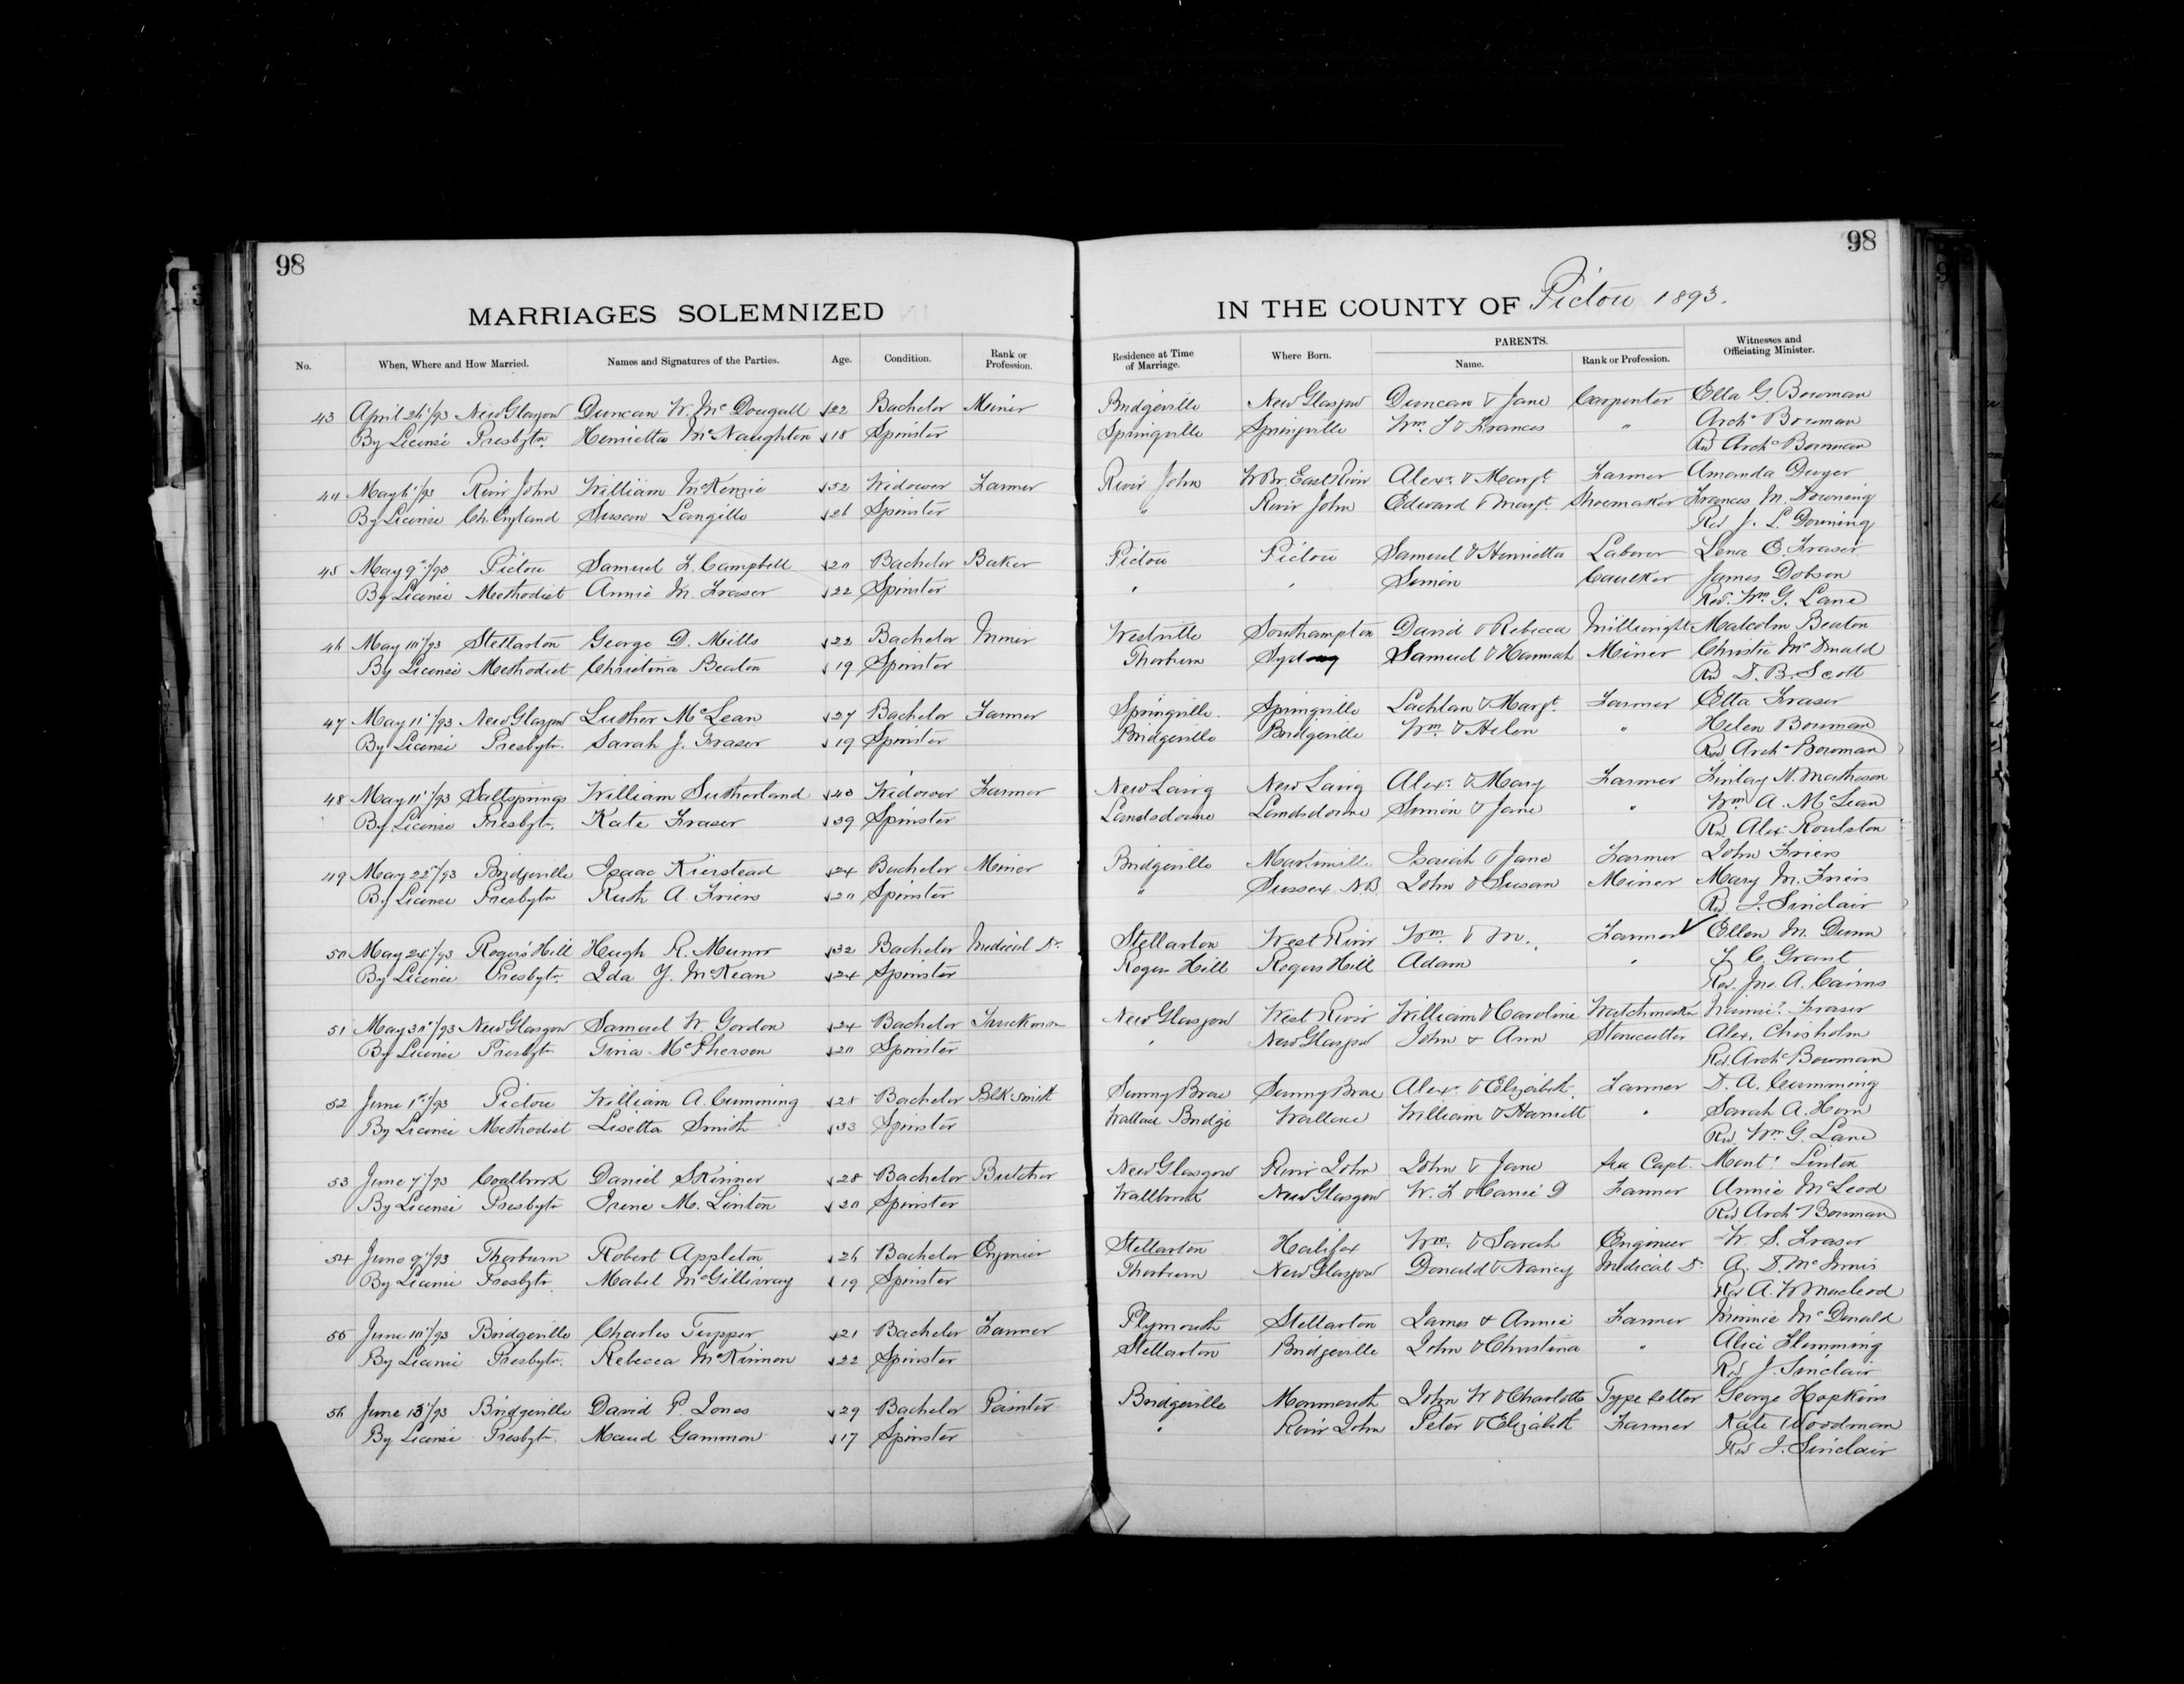 98
98
MARRIAGES SOLEMNIZED IN THE COUNTY OF Pictou 1893.
No. When, Where and How Married. Names and Signatures of the Parties. Age. Condition. Rank or Profession. Residence at Time of Marriage. Where Born. PARENTS. Name. Rank or Profession. Witnesses and Officiating Minister.
43 April 26/93 New Glasgow Duncan W. McDougall 22 Bachelor Miner Bridgeville New Glasgow Duncan & Jane Carpenter Ella G Bowman
By License Presbytn. Henrietta McNaughton 18 Spinster Springville Springville Wm. & Frances " Archd Bowman
Rev Archd Bowman
44 May 6/93 River John William McKenzie 52 Widower Farmer River John W Br. East River Alexr. & Margt. Farmer Amanda Dwyer
By License Ch. England Susan Langille 26 Spinster " River John Edward & Margt. Shoemaker Frances M. Downing
Rev J. L. Downing
45 May 9/93 Pictou Samuel F. Campbell 20 Bachelor Baker Pictou Pictou Samuel & Henrietta Laborer Lena E. Fraser
By License Methodist Annie M. Fraser 22 Spinster " " Simon Caulker James Dobson
Rev. Wm. G. Lane
46 May 10/93 Stellarton George D. Mills 22 Bachelor Miner Westville Southampton David & Rebecca Millwright Malcolm Beaton
By License Methodist Christina Beaton 19 Spinster Thorburn Sydney Samuel & Hannah Miner Christie McDonald
Rev D. B. Scott
47 May 11/93 New Glasgow Luther McLean 27 Bachelor Farmer Springville Springville Lachlan & Margt. Farmer Etta Fraser
By License Presbytn. Sarah J. Fraser 19 Spinster Bridgeville Bridgeville Wm. & Helen " Helen Bowman
Rev Archd Bowman
48 May 11/93 Saltsprings William Sutherland 40 Widower Farmer New Lairg New Lairg Alexr. & Mary Farmer Finlay N. Matheson
By License Presbytn. Kate Fraser 39 Spinster Landsdowne Landsdowne Simon & Jane " Wm A. McLean
Rev. Alex Roulston
49 May 22/93 Bridgeville Isaac Kierstead 24 Bachelor Miner Bridgeville Isaiah & Jane Farmer John Friers
By License Presbytn Ruth A. Friers 20 Spinster " Sussex N.B. John & Susan Miner Mary M. Friers
Rev J. Sinclair
50 May 24/93 Rogers Hill Hugh R. Munro 32 Bachelor Medical Dr. Stellarton West River Wm. & M. Farmer Ellen M. Dunn
By License Presbytn. Ida Y. McKean 24 Spinster Rogers Hill Rogers Hill Adam " J. C. Grant
Rev. Jno. A. Cairns
51 May 30/93 New Glasgow Samuel W. Gordon 24 Bachelor Truckman New Glasgow West River William & Caroline Watchmaker Fraser
By License Presbytn Tina McPherson 20 Spinster " New Glasgow John & Ann Stonecutter Alex. Chisholm
Rev. Archd Bowman
52 June 1st/93 Pictou William A. Cumming 28 Bachelor Blk Smith Sunny Brae Sunny Brae Alexr. & Elizabeth Farmer D. A. Cumming
By License Methodist Lisetta Smith 33 Spinster Wallace Bridge Wallace William & Harriett " Sarah A. Horn
Rev. Wm. G. Lane
53 June 7/93 Coalbrook Daniel Skinner 28 Bachelor Butcher New Glasgow River John John & Jane Sea Capt. Linton
By License Presbytn Irene M. Linton 20 Spinster Wallbrook New Glasgow W. F. & Carrie D Farmer Annie McLeod
Rev Archd Bowman
54 June 9/93 Thorburn Robert Appleton 26 Bachelor Engineer Stellarton Halifax Wm. & Sarah Engineer W. S. Fraser
By License Presbytn. Mabel McGillivray 19 Spinster Thorburn New Glasgow Donald & Nancy Medical Dr. A. D. McInnis
Rev A. W Macleod
55 June 10/93 Bridgeville Charles Tupper 21 Bachelor Farmer Plymouth Stellarton James & Annie Farmer Minnie McDonald
By License Presbytn. Rebecca McKinnon 22 Spinster Stellarton Bridgeville John & Christina " Alice Flemming
Rev J. Sinclair
56 June 13/93 Bridgeville David P. Jones 29 Bachelor Painter Bridgeville Monmouth John W & Charlotte Type Setter George Hopkins
By License Presbytn. Maud Gammon 17 Spinster " River John Peter & Elizabeth Farmer Kate Woodman
Rev J. Sinclair